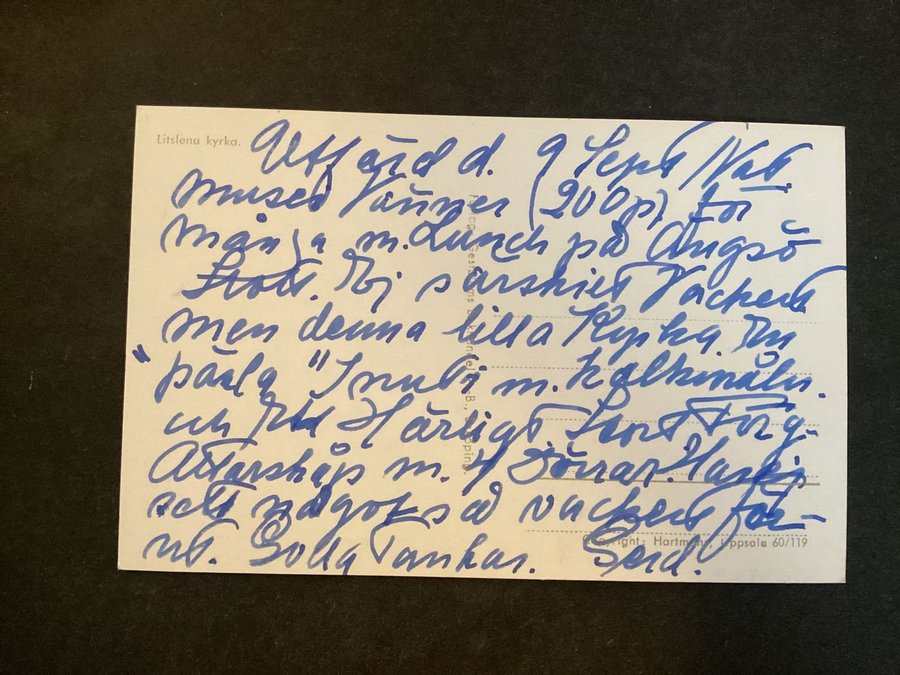 Litslena kyrka.
Utfärd d. 9 Sept Nat.
musei Vänner (200 p) för
många m. Lunch på Ängsö
Slott. Ej särskilt Vackert
men denna lilla Kyrka En
"pärla" m. kalkmåln.
och Ett Härligt Stort Förg.
Altarskåp m. 4 Dörrar. Har ej
sett något så vackert för-
ut. Goda Tankar. Gerd.
Copyright: Hartman, Uppsala 60/119